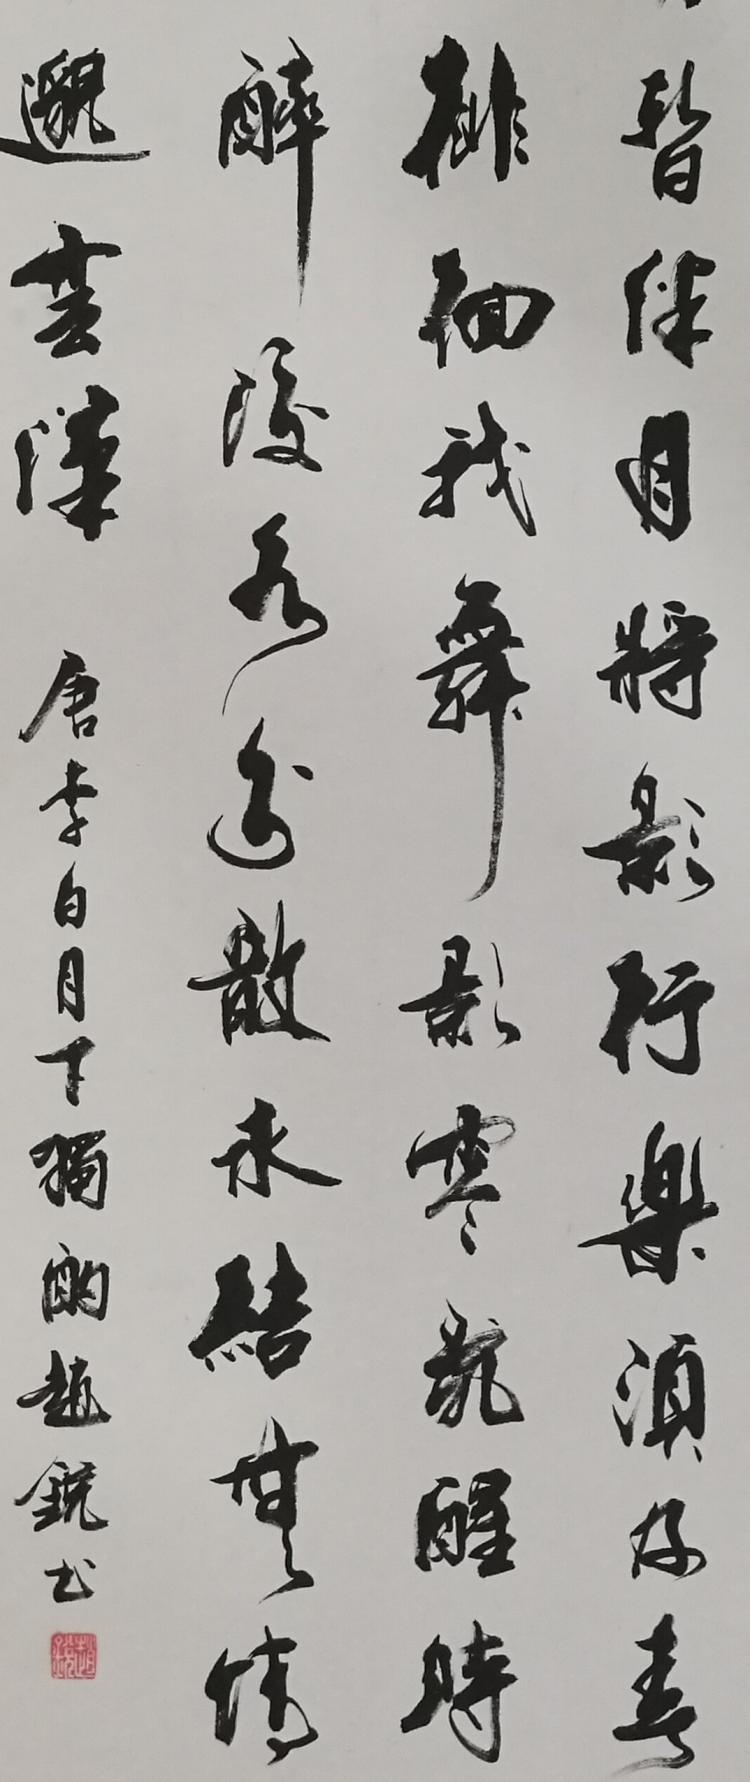 暫伴月將影行樂須及春
徘徊我舞影零亂醒時
醉後各分散永結無情
邈雲漢 唐李白月下獨酌趙銳书
趙銳